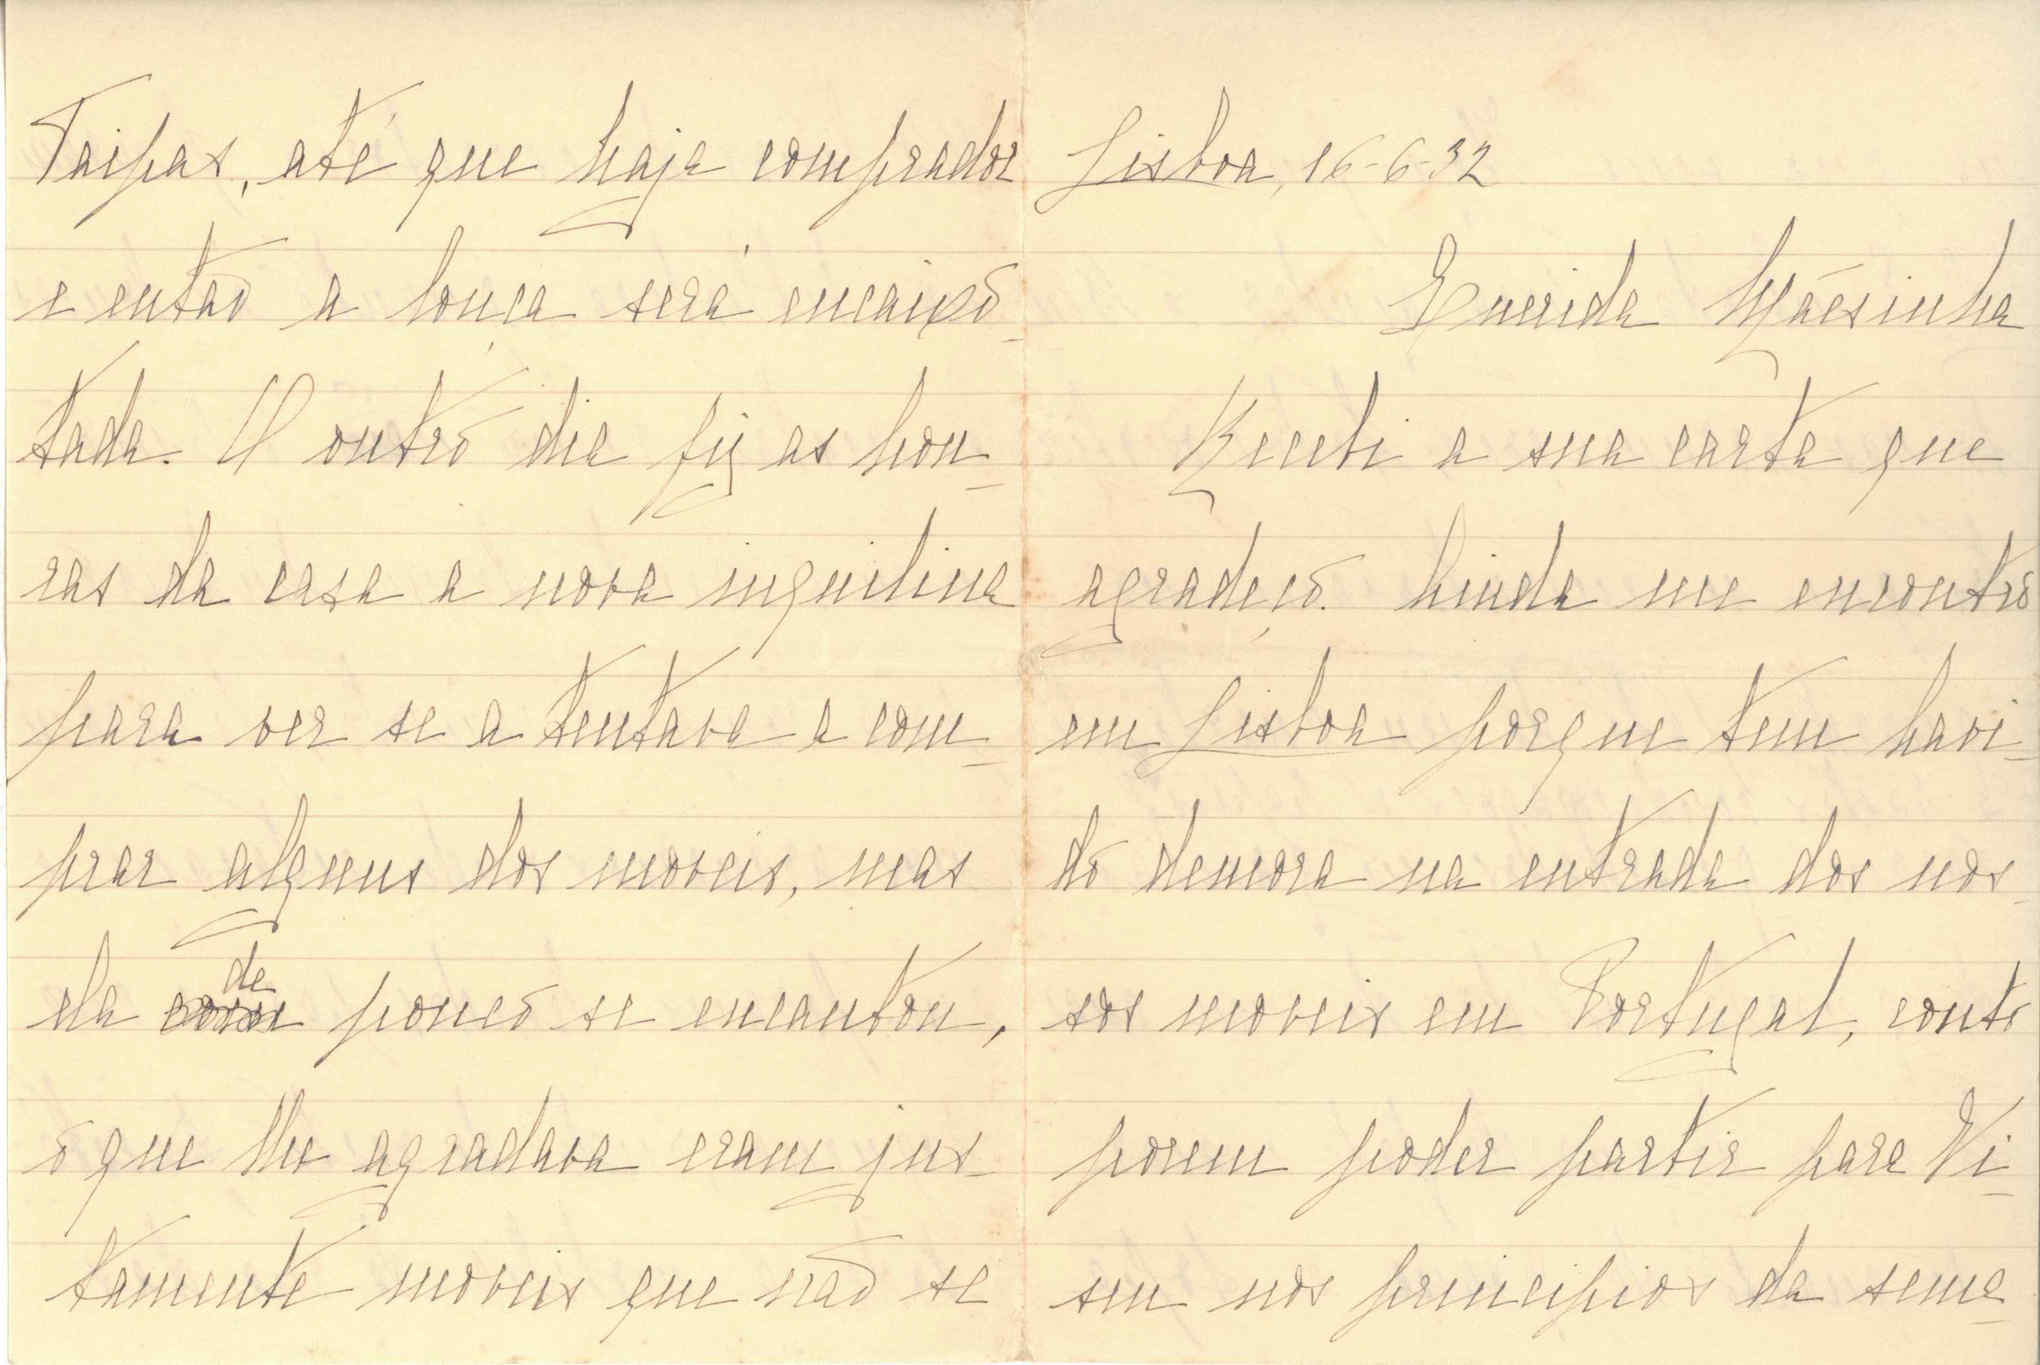 Lisboa, 16-6-32
Querida Mãesinha
Recebi a sua carta que
agradeço. Ainda me encontro
em Lisboa porque tem havi-
do demora na entrada dos nos-
sos moveis em Portugal, conto
porem poder partir para Vi-
seu nos principios da sema-
Taipas, até que haja comprador
e então a louça será encaixo-
tada. O outro dia fiz as hon-
ras da casa a nova inquilina
para ver se a tentava a com-
prar alguns dos moveis, mas
ela de pouco se encantou,
o que lhe agradava eram jus-
tamente moveis que não se